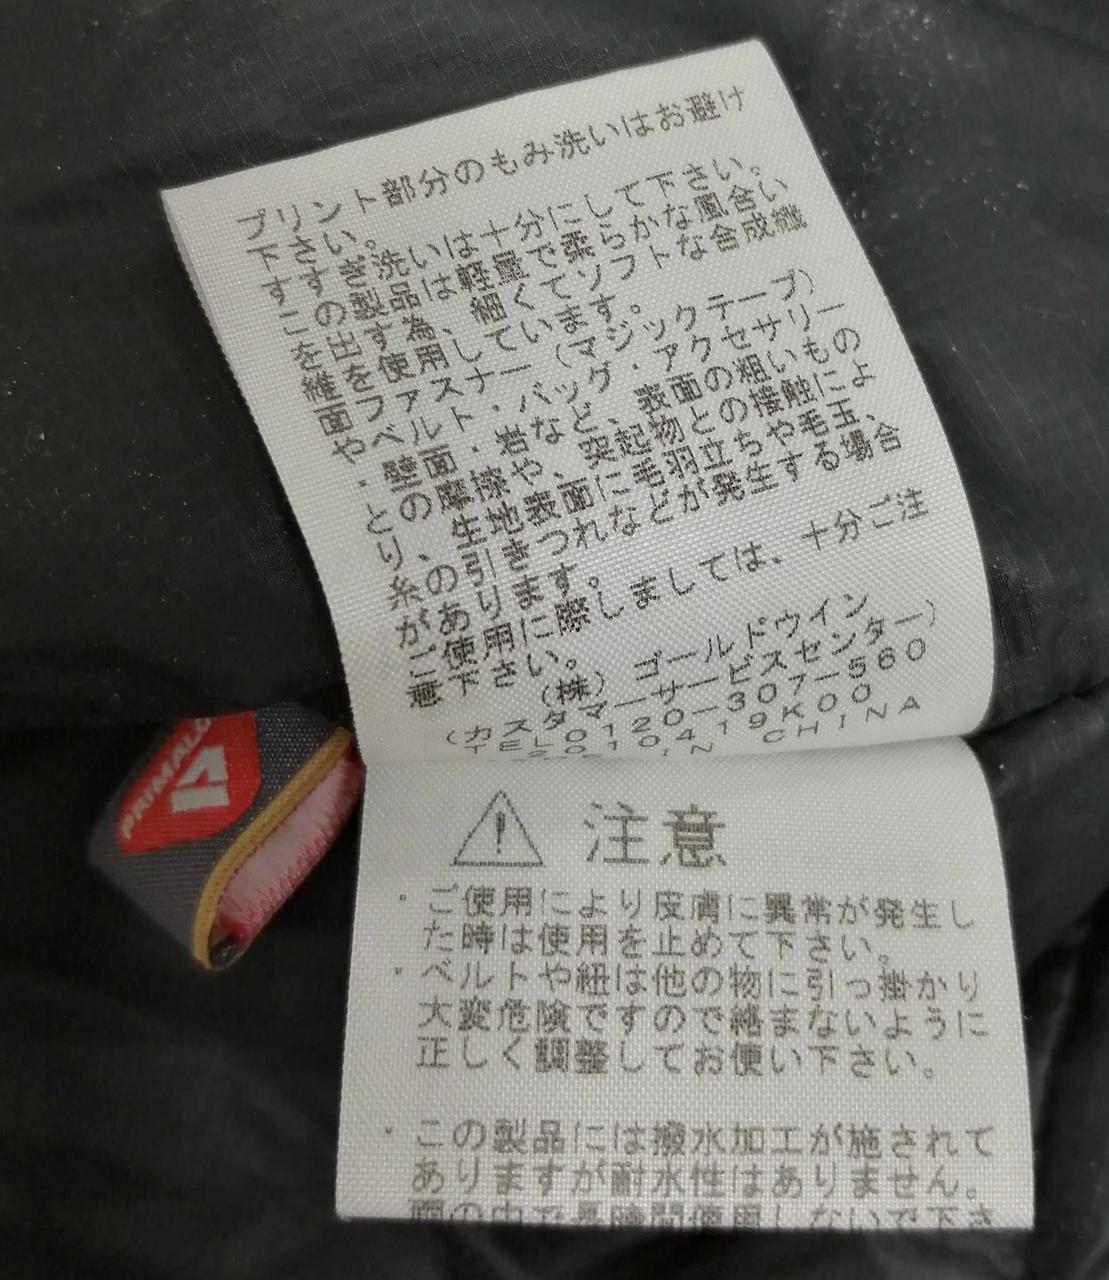 プリント部分のもみ洗いはお避け
下さい。
すすぎ洗いは十分にして下さい。
この製品は軽量で柔らかな風合い
を出す為、細くてソフトな合成繊
維を使用しています。
面ファスナー（マジックテープ）
やベルト・バッグ・アクセサリー
・壁面・岩など、表面の粗いもの
との摩擦や、突起物との接触によ
り、生地表面に毛羽立ちや毛玉、
糸の引きつれなどが発生する場合
があります。
ご使用に際しましては、十分ご注
意下さい。
（株）ゴールドウイン
（カスタマーサービスセンター）
TEL0120-307-560
20410419K00
IN CHINA
PRIMALO
注意
・ご使用により皮膚に異常が発生し
た時は使用を止めて下さい。
・ベルトや紐は他の物に引っ掛かり
大変危険ですので絡まないように
正しく調整してお使い下さい。
・この製品には撥水加工が施されて
ありますが耐水性はありません。
雨の中で長時間使用しないで下さ